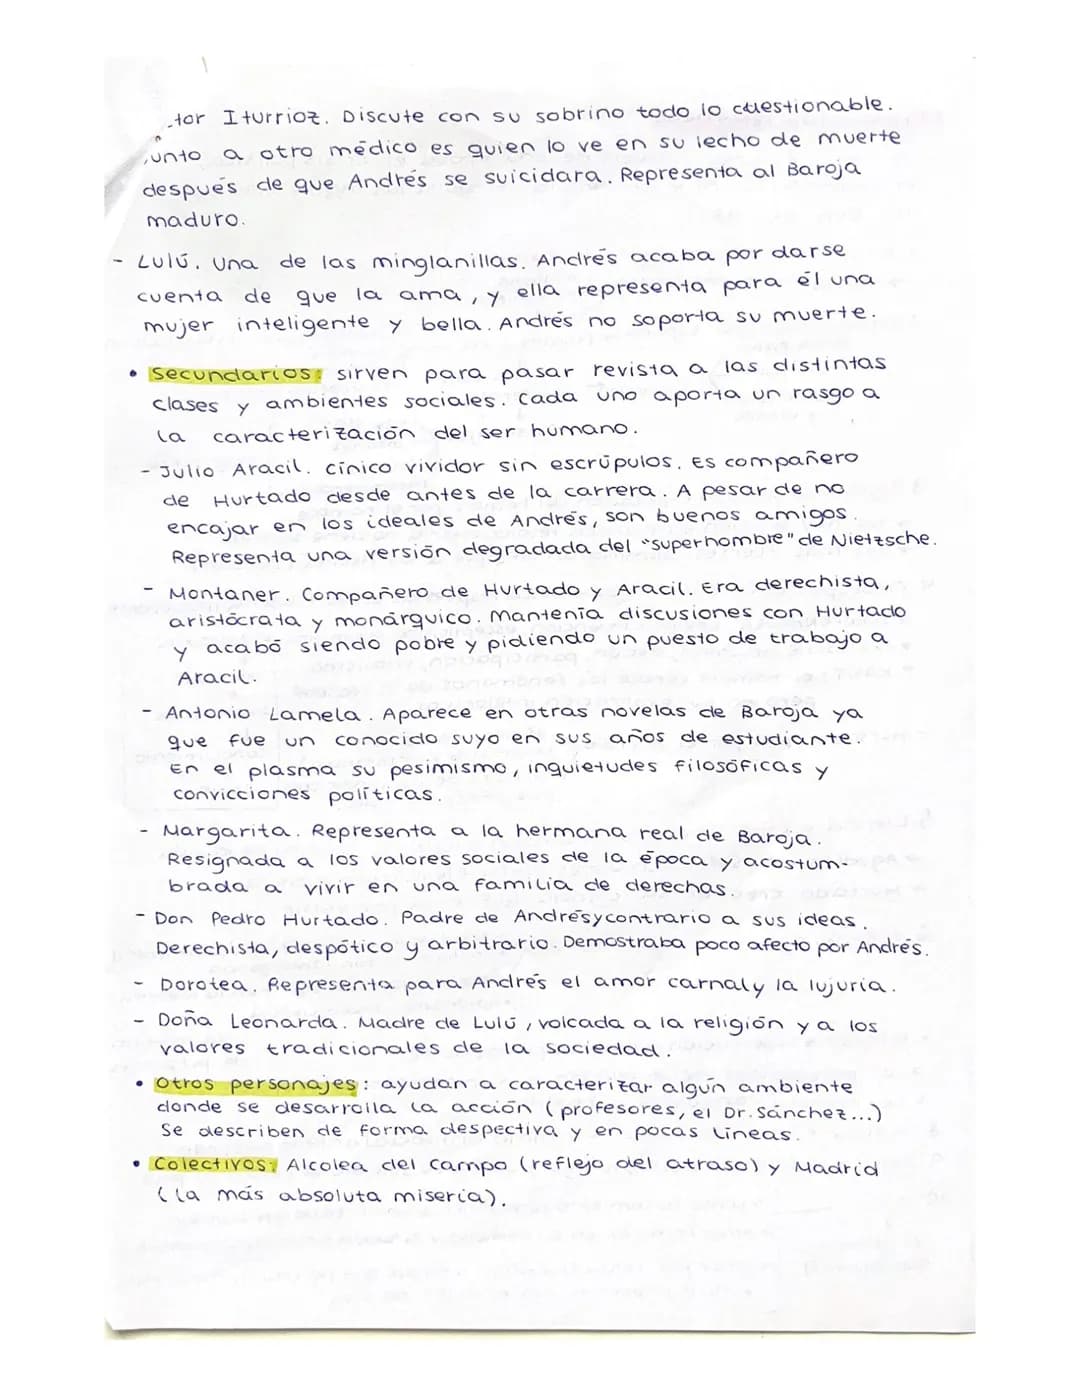 tor Iturrioz. Discute con su sobrino todo lo cuestionable.
unto a otro médico es quien lo ve en su lecho de muerte
después de que Andrés se suicidara. Representa al Baroja
maduro.
- Lulú. Una de las minglanillas. Andrés acaba por darse
cuenta de que la ama, y ella representa para él una
mujer inteligente y bella. Andrés no soporta su muerte.
• Secundarios: sirven para pasar revista a las distintas
clases y ambientes sociales. Cada uno aporta un rasgo a
la caracterización del ser humano.
- Julio Aracil. cínico vividor sin escrúpulos. Es compañero
de Hurtado desde antes de la carrera. A pesar de no
encajar en los ideales de Andrés, son buenos amigos.
Representa una versión degradada del "superhombre" de Nietzsche.
- Montaner. Compañero de Hurtado y Aracil. Era derechista,
aristócrata y monárquico. Mantenía discusiones con Hurtado
y acabó siendo pobre y pidiendo un puesto de trabajo a
Aracil.
- Antonio Lamela. Aparece en otras novelas de Baroja ya
que fue un conocido suyo en sus años de estudiante.
En el plasma su pesimismo, inquietudes filosóficas y
convicciones políticas.
- Margarita. Representa a la hermana real de Baroja.
Resignada a los valores sociales de la época y acostum-
brada a vivir en una familia de derechas.
- Don Pedro Hurtado. Padre de Andrés y contrario a sus ideas.
Derechista, despótico y arbitrario. Demostraba poco afecto por Andrés.
- Dorotea. Representa para Andrés el amor carnal y la lujuria.
- Doña Leonarda. Madre de Lulú, volcada a la religión y a los
valores tradicionales de la sociedad.
• Otros personajes: ayudan a caracterizar algún ambiente
donde se desarrolla la acción (profesores, el Dr. Sánchez...)
Se describen de forma despectiva y en pocas líneas.
• Colectivos: Alcolea del Campo (reflejo del atraso) y Madrid
(la más absoluta miseria).